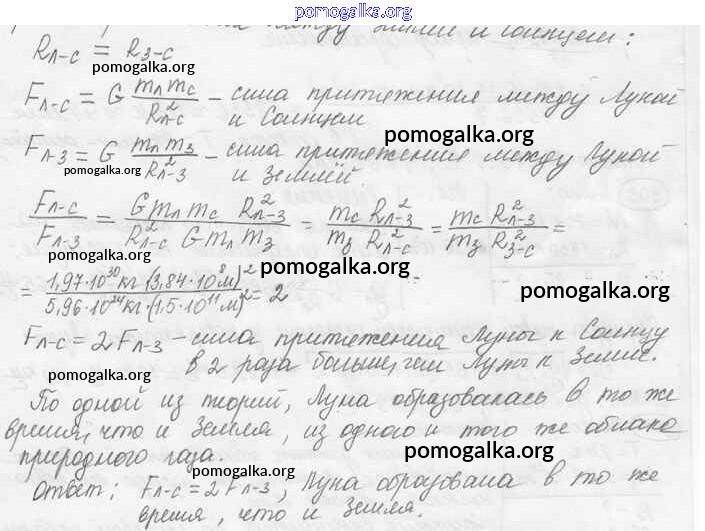 pomogalka.org
между Землей и Солнцем:
R_Л-С = R_З-С
pomogalka.org
F_Л-С = G m_Л m_С / R²_Л-С – сила притяжения между Луной
и Солнцем
pomogalka.org
F_Л-З = G m_Л m_З / R²_Л-З – сила притяжения между Луной
pomogalka.org
и Землёй
F_Л-С / F_Л-З = G m_Л m_С R²_Л-З / R²_Л-С G m_Л m_З = m_С R²_Л-З / m_З R²_Л-С = m_С R²_Л-З / m_З R²_З-С =
pomogalka.org
= 1,97·10³⁰ кг·(3,84·10⁸ м)² / 5,96·10²⁴ кг·(1,5·10¹¹ м)² = 2
pomogalka.org
F_Л-С = 2 F_Л-З – сила притяжения Луны к Солнцу
в 2 раза больше, чем Луны к Земле.
pomogalka.org
По одной из теорий, Луна образовалась в то же
pomogalka.org
время, что и Земля, из одного и того же облака
природного газа.
pomogalka.org
pomogalka.org
Ответ: F_Л-С = 2 F_Л-З, Луна образована в то же
время, что и Земля.